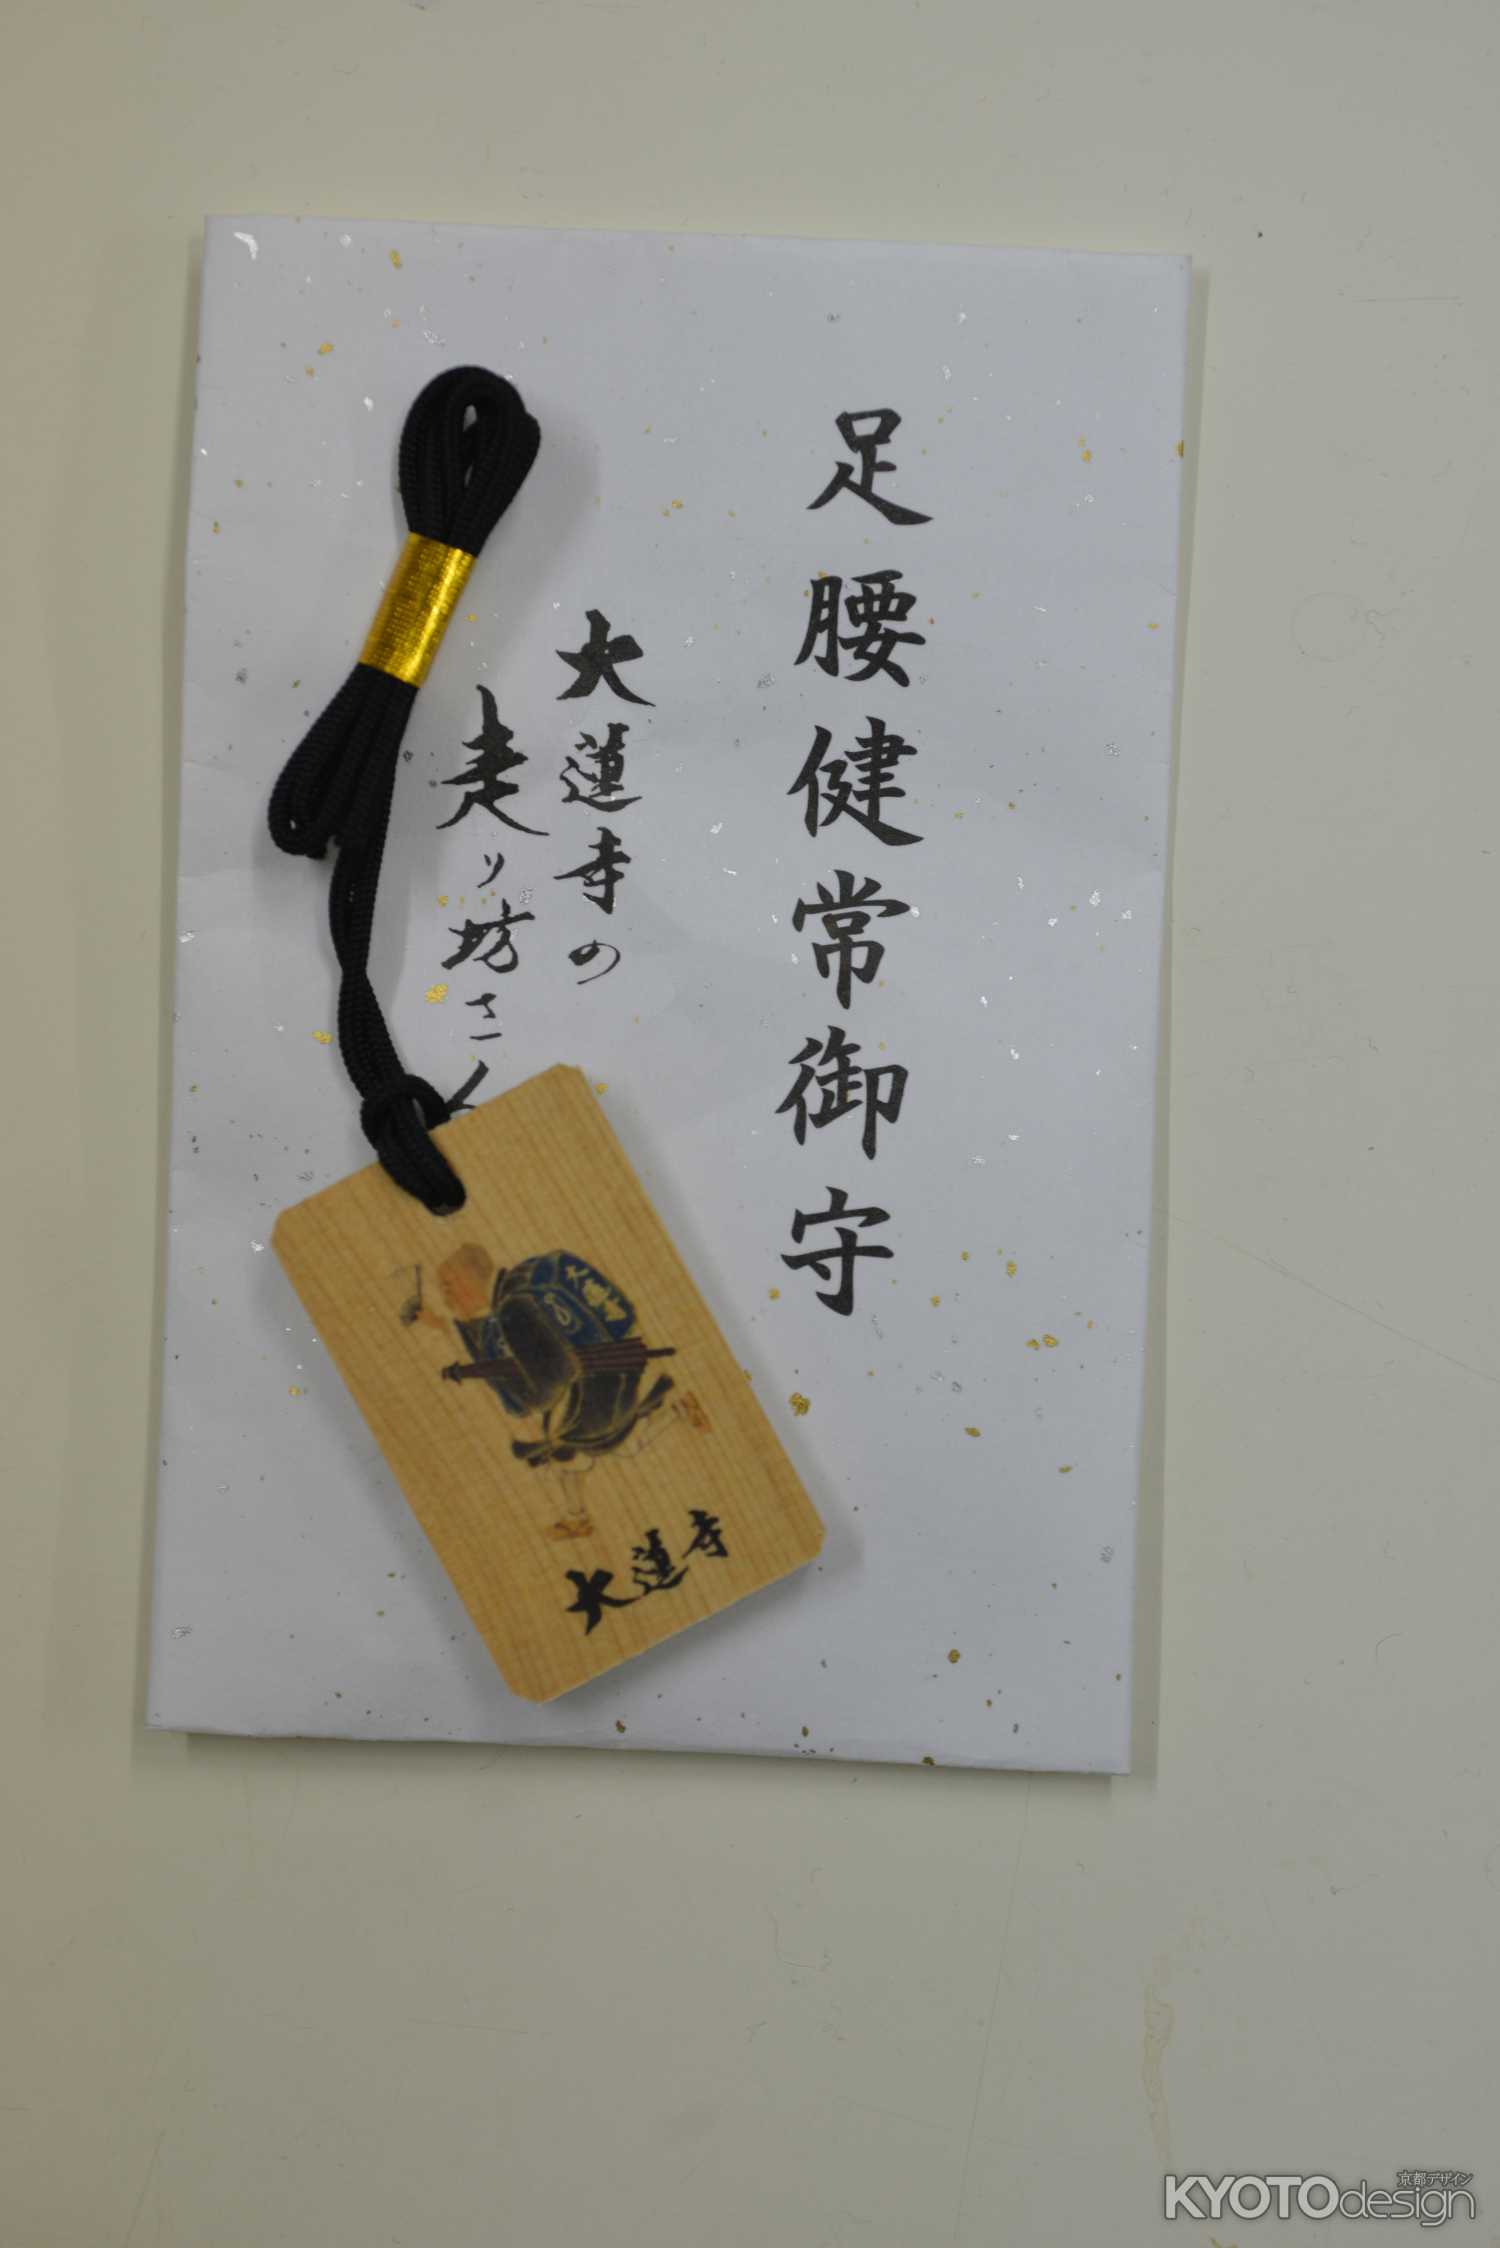 足腰健常御守
大蓮寺の
走り坊さん
大蓮寺
大蓮寺
京都デザイン
KYOTOdesign